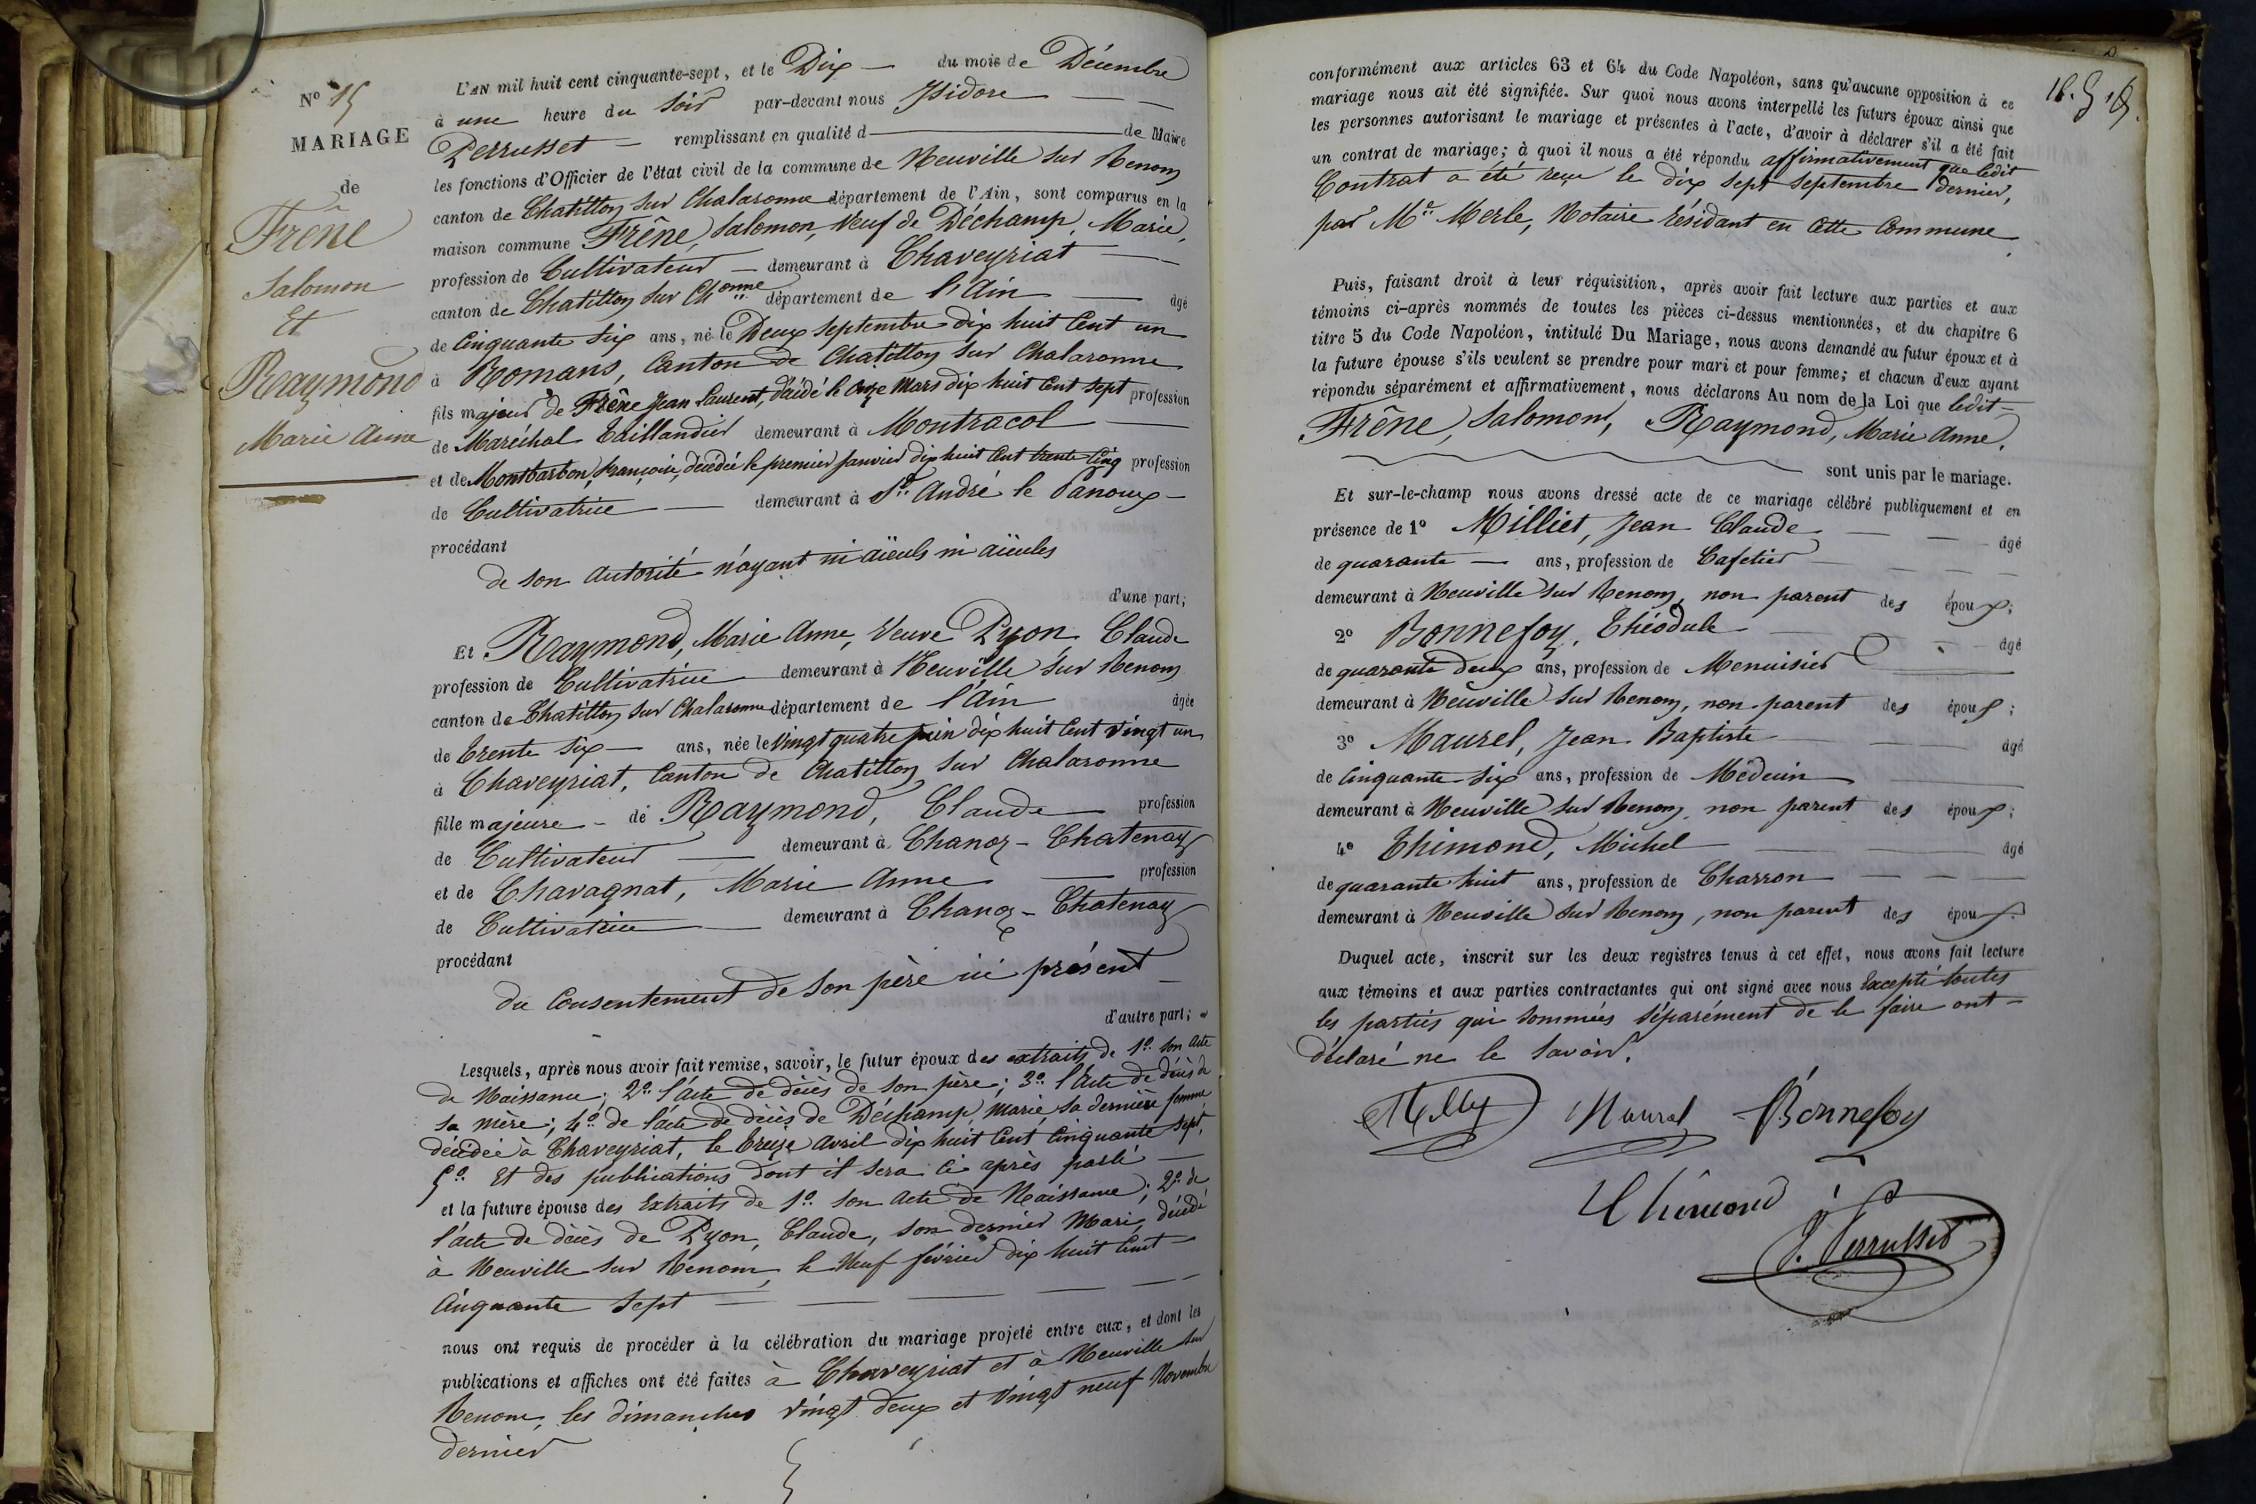 N° 15
MARIAGE
de
Frêne
Salomon
Et
Raymond
Marie Anne
L'AN mil huit cent cinquante-sept, et le Dix du mois de Décembre
à une heure du Soir par-devant nous Isidore
Perrusset remplissant en qualité d de Maire
les fonctions d'Officier de l'état civil de la commune de Neuville sur Renom
canton de Chatillon sur Chalaronne département de l'Ain, sont comparus en la
maison commune Frêne, Salomon, Veuf de Déchamp, Marie,
profession de Cultivateur demeurant à Chaveyriat
canton de Chatillon sur Chonne département de l'Ain âgé
de Cinquante six ans, né le Deux septembre dix huit Cent un
à Romans, Canton de Chatillon sur Chalaronne
fils majeur de Frêne Jean Laurent, décédé le onze Mars dix huit Cent sept profession
de Maréchal Taillandier demeurant à Montracol
et de Montbarbon, françoise, décédée le premier Janvier dix huit Cent trente Cinq profession
de Cultivatrice demeurant à St. André le Panoux
procédant
de son autorité n'ayant ni aïeuls ni aïeules
d'une part;
Et Raymond, Marie Anne, Veuve Pyon, Claude
profession de Cultivatrice demeurant à Neuville sur Renom
canton de Chatillon sur Chalaronne département de l'Ain âgée
de trente six ans, née le vingt quatre juin dix huit Cent vingt un
à Chaveyriat, Canton de Chatillon sur Chalaronne
fille majeure de Raymond, Claude profession
de Cultivateur demeurant à Chanoz-Chatenay
et de Chavagnat, Marie Anne profession
de Cultivatrice demeurant à Chanoz-Chatenay
procédant
du Consentement de son père ici présent
d'autre part;
Lesquels, après nous avoir fait remise, savoir, le futur époux des extraits de 1° son acte
de Naissance; 2° l'acte de décès de son père; 3° l'Acte de décès de
sa mère; 4° de l'acte de décès de Déchamp, Marie sa dernière femme
décédée à Chaveyriat, le treize avril dix huit Cent Cinquante sept,
5° Et des publications dont il sera ci après parlé
et la future épouse des Extraits de 1° son acte de Naissance; 2° de
l'acte de décès de Pyon, Claude, son dernier Mari, décédé
à Neuville sur Renom, le Neuf février dix huit Cent
Cinquante sept
nous ont requis de procéder à la célébration du mariage projeté entre eux, et dont les
publications et affiches ont été faites à Chaveyriat et à Neuville sur
Renom, les dimanches vingt deux et vingt neuf Novembre
dernier
conformément aux articles 63 et 64 du Code Napoléon, sans qu'aucune opposition à ce
mariage nous ait été signifiée. Sur quoi nous avons interpellé les futurs époux ainsi que
les personnes autorisant le mariage et présentes à l'acte, d'avoir à déclarer s'il a été fait
un contrat de mariage; à quoi il nous a été répondu affirmativement que ledit
Contrat a été reçu le dix sept septembre dernier,
par Me. Merle, Notaire résidant en cette Commune.
Puis, faisant droit à leur réquisition, après avoir fait lecture aux parties et aux
témoins ci-après nommés de toutes les pièces ci-dessus mentionnées, et du chapitre 6
titre 5 du Code Napoléon, intitulé Du Mariage, nous avons demandé au futur époux et à
la future épouse s'ils veulent se prendre pour mari et pour femme; et chacun d'eux ayant
répondu séparément et affirmativement, nous déclarons Au nom de la Loi que ledit
Frêne, Salomon, Raymond, Marie Anne,
sont unis par le mariage.
Et sur-le-champ nous avons dressé acte de ce mariage célébré publiquement et en
présence de 1° Milliet, Jean Claude âgé
de quarante ans, profession de Cafetier
demeurant à Neuville sur Renom, non parent des époux;
2° Bonnefoy, Théodule âgé
de quarante deux ans, profession de Menuisier
demeurant à Neuville sur Renom, non parent des époux;
3° Maurel, Jean Baptiste âgé
de Cinquante six ans, profession de Médecin
demeurant à Neuville sur Renom, non parent des époux;
4° Thimond, Michel âgé
de quarante huit ans, profession de Charron
demeurant à Neuville sur Renom, non parent des époux.
Duquel acte, inscrit sur les deux registres tenus à cet effet, nous avons fait lecture
aux témoins et aux parties contractantes qui ont signé avec nous Excepté toutes
les parties qui sommées séparément de le faire ont
déclaré ne le savoir.
Maurel Bonnefoy
Thimond
J. Perrusset